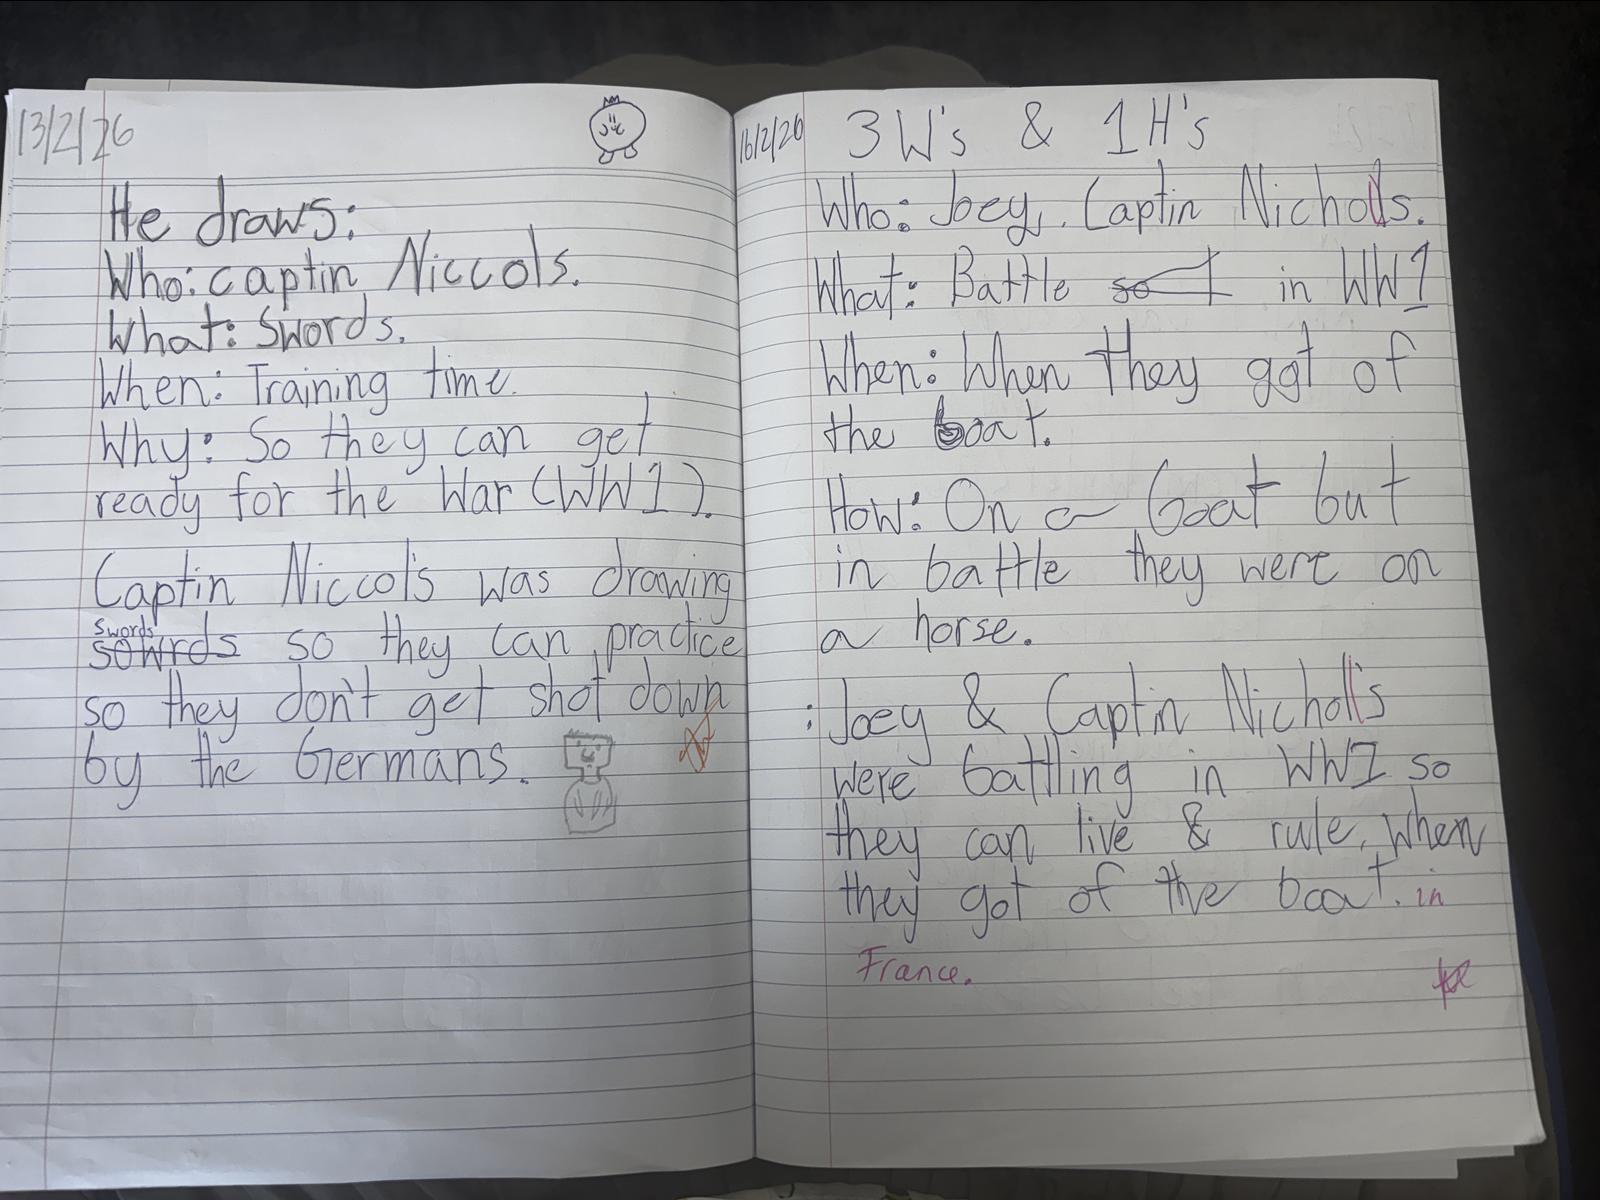 13/2/26
He draws:
Who: captin Niccols.
What: Swords.
When: Training time.
Why: So they can get
ready for the War (WW1).
Captin Niccol's was drawing
Swords
sowrds so they can practice
so they don't get shot down
by the Germans.
16/2/26 3 W's & 1 H's
Who: Joey, Captin Nicholls.
What: Battle so I in WW1
When: When they got of
the boat.
How: On a boat but
in battle they were on
a horse.
: Joey & Captin Nicholl's
were battling in WWI so
they can live & rule. When
they got of the boat. in
France.